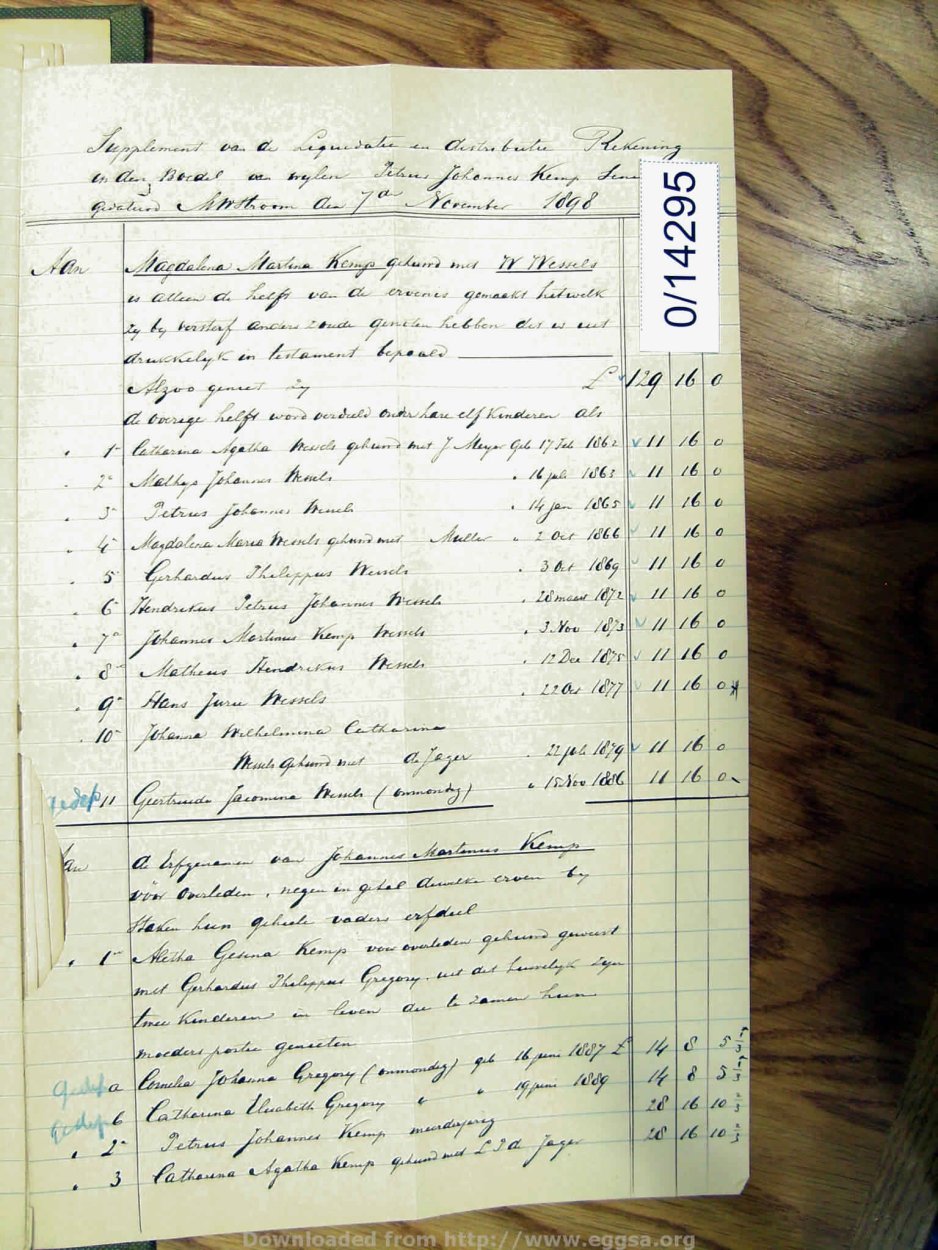 Supplement van de Liquidatie en distributie Rekening
in den Boedel van wylen Petrus Johannes Kemp Sen
gedateerd MWStroom den 7de November 1898
0/14295
Aan Magdalena Martina Kemp gehuwd met W Wessels
is alleen de helft van de ervenis gemaakt hetwelk
zy by versterf anders zoude genoten hebben dit is uit
drukkelyk in testament bepaald
Alzoo geniet zy £ 129 16 0
de overige helft word verdeeld onder hare elf Kinderen als
" 1e Catharina Agatha Wessels gehuwd met J Meyer Geb 17 Feb 1862 11 16 0
" 2e Mathys Johannes Wessels " 16 juli 1863 11 16 0
" 3e Petrus Johannes Wessels " 14 jan 1865 11 16 0
" 4e Magdalena Maria Wessels gehuwd met Muller " 2 Oct 1866 11 16 0
" 5e Gerhardus Philippus Wessels " 3 Oct 1869 11 16 0
" 6e Hendrikus Petrus Johannes Wessels " 28 maart 1872 11 16 0
" 7e Johannes Martinus Kemp Wessels " 3 Nov 1873 11 16 0
" 8e Matheus Hendrikus Wessels " 12 Dec 1875 11 16 0
" 9e Hans Jurie Wessels " 22 Oct 1877 11 16 0
" 10e Johanna Wilhelmina Catharina
Wessels gehuwd met de Jager " 22 juli 1879 11 16 0
gedep 11 Geertruida Jacomina Wessels (onmondig) " 15 Nov 1886 11 16 0
Aan de Erfgenamen van Johannes Martinus Kemp
vóór overleden, negen in getal dewelke erven by
Staken hun geheele vaders erfdeel
" 1e Aletha Gesina Kemp voor overleden gehuwd geweest
met Gerhardus Philippus Gregory. uit dit huwelyk zyn
twee Kinderen in leven die te zamen hun
moeders portie genieten
gedep a Cornelia Johanna Gregory (onmondig) geb 16 juni 1887 £ 14 8 5 1/3
gedep b Catharina Elisabeth Gregory " " 19 juni 1889 14 8 5 1/3
" 2e Petrus Johannes Kemp meerderjarig 28 16 10 2/3
" 3 Catharina Agatha Kemp gehuwd met L P de Jager 28 16 10 2/3
Downloaded from http://www.eggsa.org